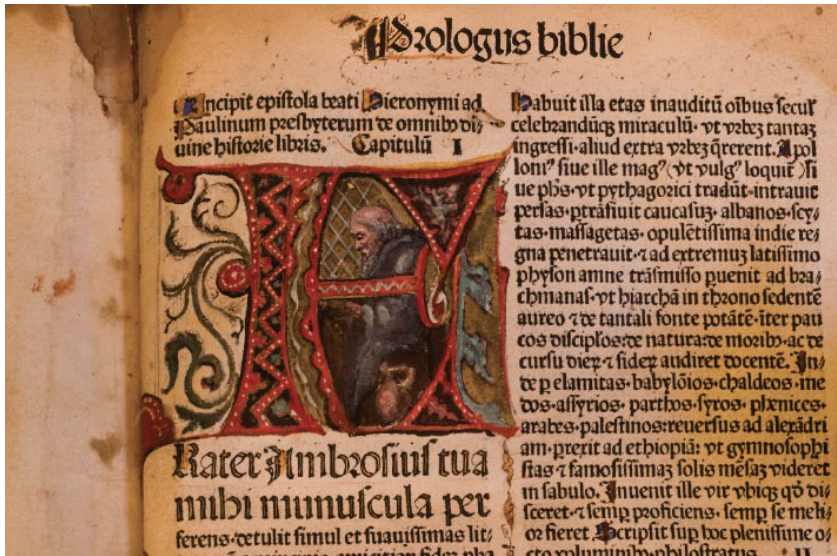 Prologus biblie
Incipit epistola beati Hieronymi ad
Paulinum presbyterum de omnibꝰ di-
uine historie libris. Capitulū I
F
Rater Ambrosius tua
mihi munuscula per
ferens·detulit simul et suauissimas lit/
Habuit illa etas inauditū oībus secul'
celebrandūqꝫ miraculū· vt vrbeꝫ tantaꝫ
ingressi·aliud extra vrbeꝫ q̄rerent. Apol
loniꝰ siue ille magꝰ (vt vulgꝰ loquit̄) si
ue phs·vt pythagorici tradūt·intrauit
persas·ptrāsiuit caucasuꝫ·albanos·scy-
tas·massagetas·opulētissima indie re-
gna penetrauit·⁊ ad extremuꝫ latissimo
physon amne trāsmisso puenit ad bra-
chmanas·vt hiarchā in throno sedentē
aureo ⁊ de tantali fonte potātē·īter pau
cos disciplos:de natura:de moribꝰ·ac de
cursu dieꝝ ⁊ sideꝝ audiret docentē. In-
de p elamitas·babylōios·chaldeos·me
dos·assyrios·parthos·syros·phenices·
arabes·palestinos:reuersus ad alexādri
am·prexit ad ethiopiā: vt gymnosophi
stas ⁊ famosissimaꝫ solis mēsaꝫ videret
in sabulo. Inuenit ille vir vbiqꝫ qd̄ di-
sceret·⁊ semp proficiens·semp se meli-
or fieret. Scripsit sup hoc plenissime o/
cto voluminibꝰ philostratus. II